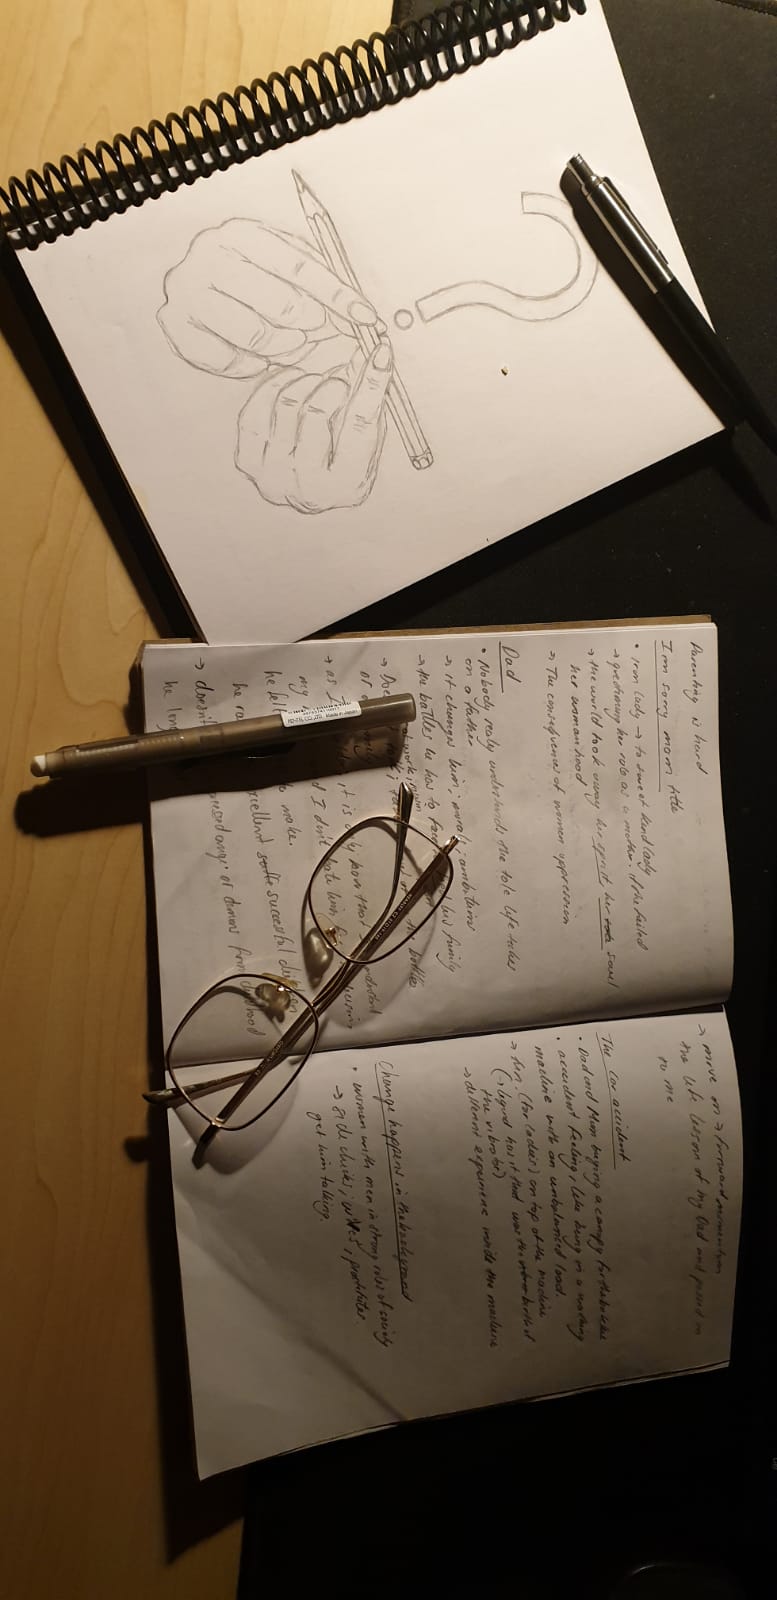 Parenting is hard
I'm sorry mom title
• Iron lady → to sweet kind lady
→ questioning her role as a mother. if she failed
→ the world took away her spirit, her soul
her womanhood
→ The consequences of women oppression
Dad
• Nobody realy understands the tole life takes
on a father
→ it changes him; morals; ambitions
→ the battles he has to face his family
at work; mum
→ the battles
or
→ as I it is only now that I understand
my and I don't hate him
he felt to make.
he excellent successful children
→ doesn't anger or demons from childhood
he
→ move on → forward momentum
the life lesson of my Dad and passed on
to me
The car accident
• Dad and Mum buying a canopy for the bakkie
• accident feeling, like being in a washing
machine with an unbalanced load.
→ fun (for ladies) on top of the machine
(→ legend has it that was the birth of
the vibrator)
→ different experience inside the machine
Change happens in the background
• women with men in strong roles of society
→ side chicks; wives, prostitutes
get him talking.